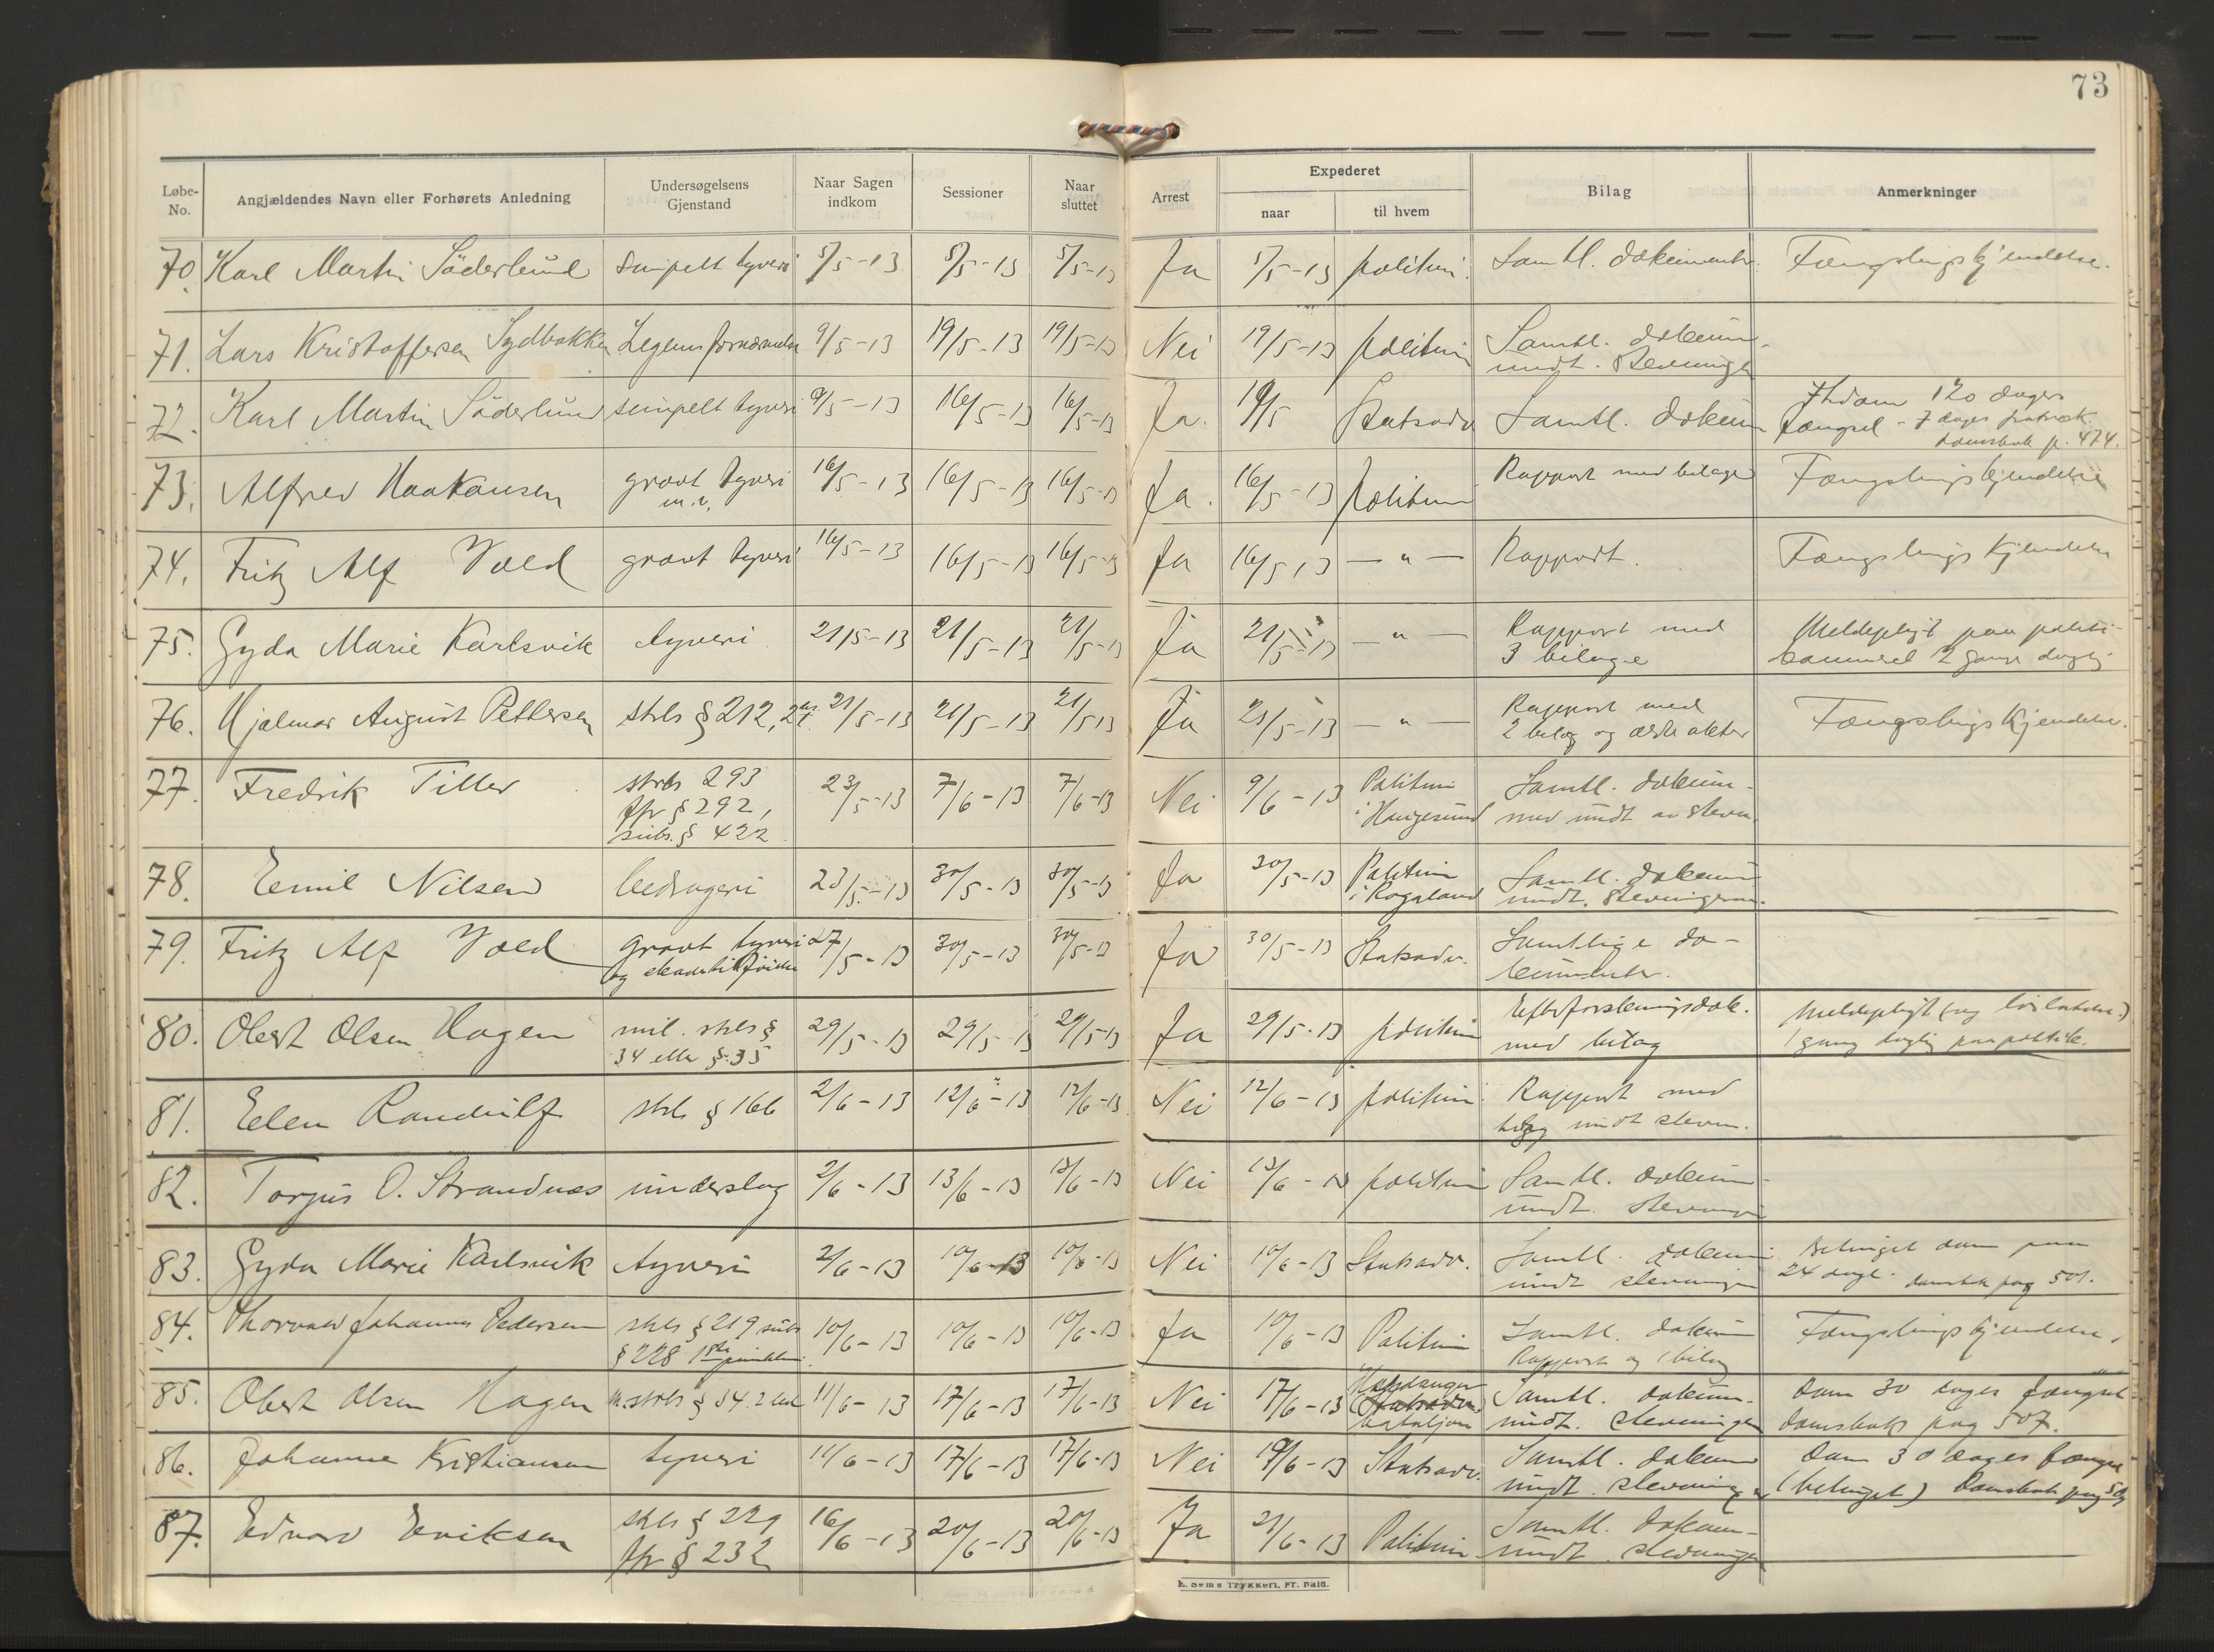 73
Løbe-No. Angjældendes Navn eller Forhørets Anledning Undersøgelsens Gjenstand Naar Sagen indkom Sessioner Naar sluttet Arrest Expederet naar til hvem Bilag Anmerkninger
70. Karl Martin Söderlund simpelt tyveri 5/5-13 5/5-13 5/5-13 Ja 5/5-13 politiet Samtl. dokumenter Fængslingskjendelse.
71. Lars Kristoffersen Sydbakken Legems fornærmelse 9/5-13 19/5-13 19/5-13 Nei 19/5-13 politiet Samtl. dokum-
undt. stevningen
72. Karl Martin Söderlund simpelt tyveri 9/5-13 16/5-13 16/5-13 Ja. 19/5 Statsadv Samtl. dokum dom 120 dagers
fængsel - 7 dages fratræk
domsbok p. 474.
73. Alfred Haakonsen grovt tyveri 16/5-13 16/5-13 16/5-13 Ja. 16/5-13 politiet Rapport med bilage Fængslingskjendelse
m.v.
74. Fritz Alf Vold grovt tyveri 16/5-13 16/5-13 16/5-13 Ja 16/5 13 — " — Rapport. Fængslingskjendelse
75. Gyda Marie Karlsvik tyveri 21/5-13 21/5-13 21/5-13 Ja 21/5-13 — " — Rapport med
3 bilage Meldepligt paa politi-
kammeret 2 gange daglig
76. Hjalmar August Pettersen strls § 212, 2 21/5-13 21/5-13 21/5 13 Ja 21/5-13 — " — Rapport med
2 bilag og ældre akter Fængslingskjendelse.
77. Fredrik Tiller strls 293
jfr § 292,
subs. § 422 23/5-13 7/6-13 7/6-13 Nei 9/6-13 Politiet
i Haugesund Samtl. dokum-
med undt av stevn.
78. Emil Nilsen bedrageri 23/5-13 30/5-13 30/5-13 Ja 30/5-13 Politiet
i Rogaland Samtl. dokum
undt. stevningen
79. Fritz Alf Vold grovt tyveri
og skadetilføielse 27/5-13 30/5-13 30/5-13 Ja 30/5-13 Statsadv. Samtlige do-
kumenter.
80. Obert Olsen Hagen mil. strls §
34 eller § 35 29/5-13 29/5-13 29/5-13 Ja 29/5-13 politiet Efterforskningsdok.
med bilag Meldepligt (og løslatelse)
1 gang daglig paa politik.
81. Ellen Randulf strls § 166 2/6-13 12/6-13 12/6-13 Nei 12/6-13 politiet Rapport med
bilag undt stevn.
82. Torgus O. Strandnæs underslag 2/6-13 13/6-13 13/6-13 Nei 13/6-13 politiet Samtl. dokum-
undt. stevningen
83. Gyda Marie Karlsvik tyveri 2/6-13 10/6-13 10/6-13 Nei 10/6-13 Statsadv. Samtl. dokum
undt stevningen Betinget dom paa
24 dage. domsbok pag 501.
84. Thorvald Johannes Pedersen strls § 219 subs
§ 228 1ste punktum 10/6-13 10/6-13 10/6-13 Ja 10/6-13 Politiet Samtl. dokum
Rapport og 1 bilag Fængslingskjendelse.
85. Obert Olsen Hagen m.strls § 34. 2 led 11/6-13 17/6-13 17/6-13 Nei 17/6-13 Hardanger
bataljon Samtl. dokum-
undt. stevningen Dom 30 dages fængsel
domsbok pag 507.
86. Johanne Kristiansen tyveri 11/6-13 17/6-13 17/6-13 Nei 19/6-13 Statsadv. Samtl. dokum
undt. stevningen Dom 30 dages fængsel
(betinget) Domsbok pag
87. Edvard Eriksen strls § 229
jfr § 232 16/6-13 20/6-13 20/6-13 Ja 21/6-13 Politiet Samtl. dokum-
undt. stevningen
E. Sems Trykkeri, Fr. Hald.